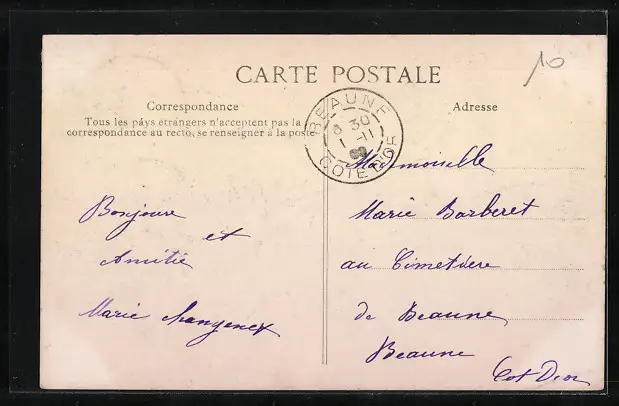 10
CARTE POSTALE
Correspondance
Tous les pays étrangers n'acceptent pas la
correspondance au recto, se renseigner à la poste
Bonjour
et
Amitié
Marie
Adresse
BEAUNE
8 30
1 -11
CÔTE D'OR
Mademoiselle
Marie Barberet
au Cimetière
de Beaune
Beaune
Cot Dor